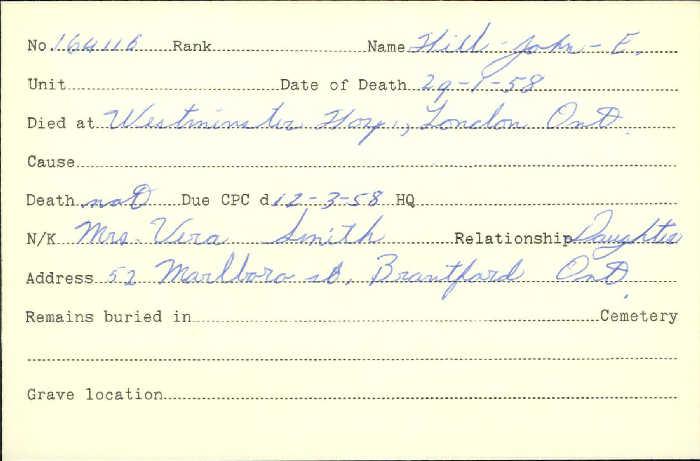 No. 164116 Rank Name Hill - John - E.
Unit Date of Death 29-1-58
Died at Westminster Hosp., London Ont.
Cause
Death not Due CPC d 12-3-58 HQ
N/K Mrs. Vera Smith Relationship Daughter
Address 52 Marlboro st, Brantford Ont.
Remains buried in Cemetery
Grave location